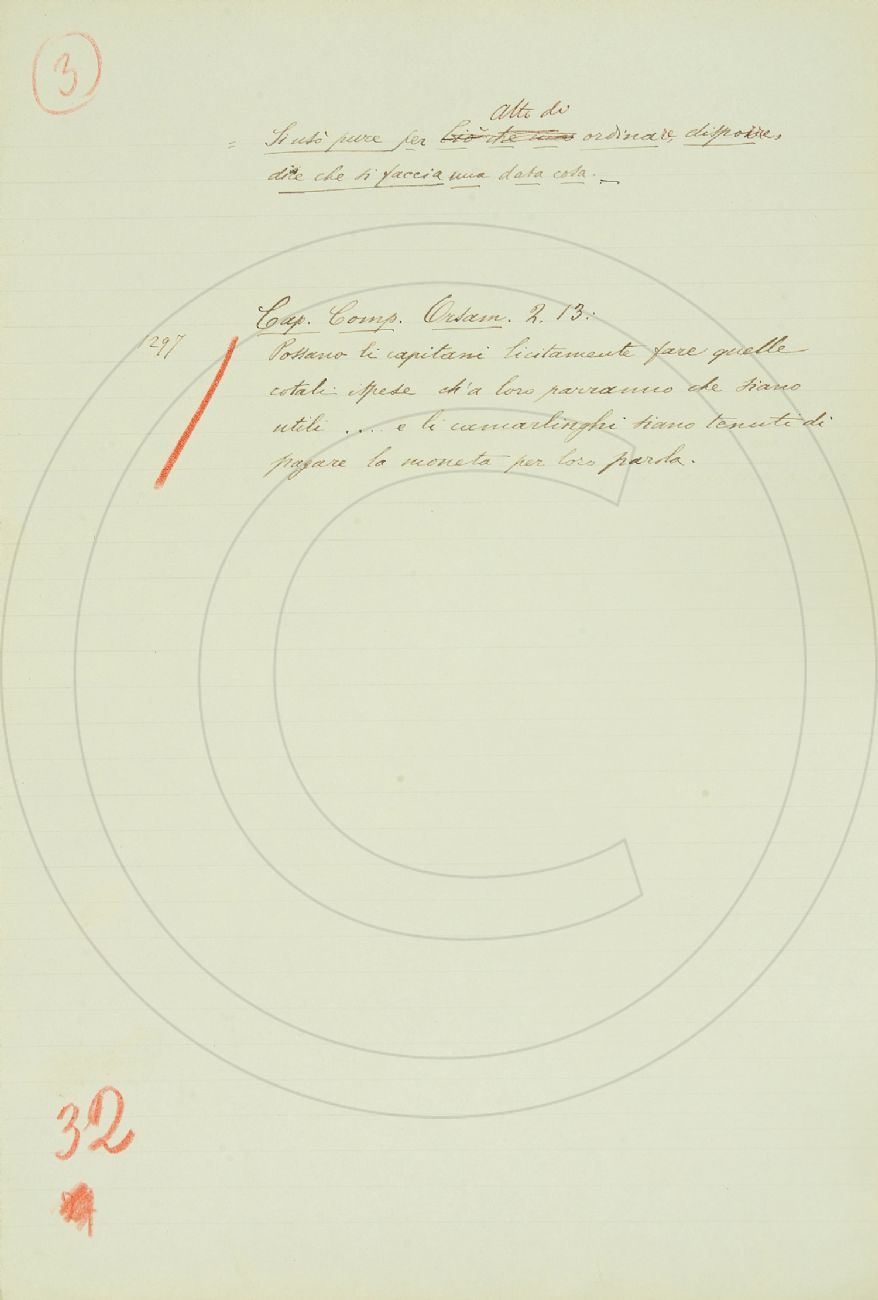 3
Atto di
= Si usò pure per Ciò che uno ordinare, disporre,
dire che si faccia una data cosa._
Cap. Comp. Orsam. 2. 13:
1297
Possano li capitani licitamente fare quelle
cotali spese ch'a loro parranno che siano
utili .... e li camarlinghi siano tenuti di
pagare la moneta per loro parola.
32